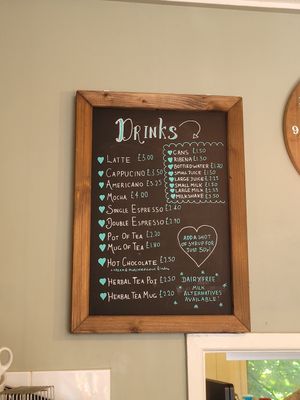 Drinks
Latte £3.00
Cappucino £3.50
Americano £3.25
Mocha £4.00
Single Espresso £2.40
Double Espresso £2.90
Pot of Tea £2.20
Mug of Tea £1.80
Hot Chocolate £2.50
Herbal Tea Pot £2.50
Herbal Tea Mug £2.20
Cans £1.50
Ribena £1.30
Bottled Water £1.20
Small Juice £1.50
Large Juice
Small Milk £1.50
Large Milk
Milkshake £3.50
Add a shot
of syrup for
just 50p!
Dairy Free
Milk
Alternatives
Available!